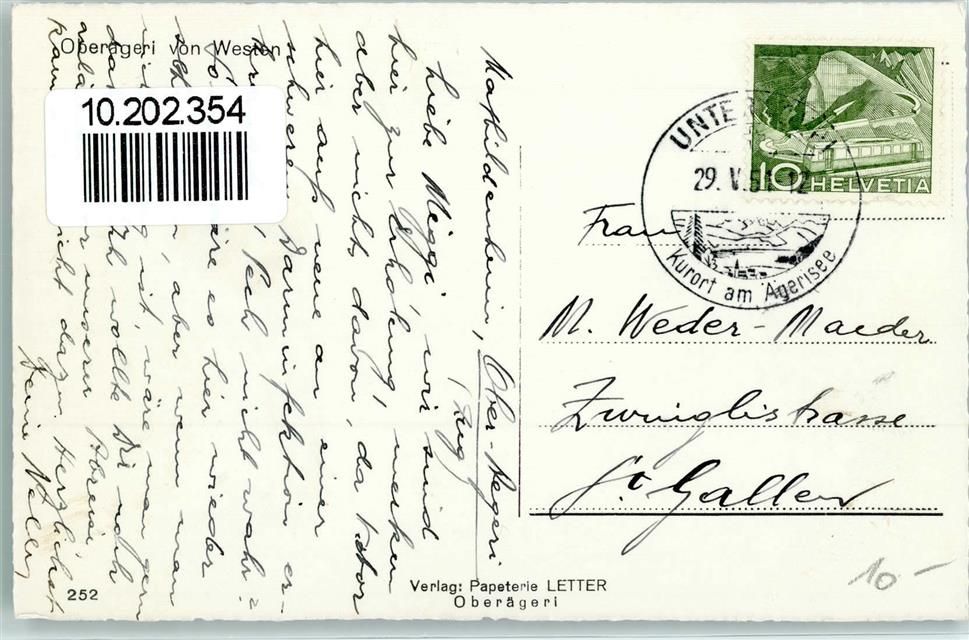 Oberägeri von Westen
10.202.354
Mathildenheim, Ober-Aegeri
(Zug)
Liebe Meggi! wir sind
hier zur Erholung, merken
aber nicht davon, da
hier aufs neue an einer
schweren Darminfektion er-
Pech nicht wahr?
wäre es hier wieder
aber wenn man
ist, wäre man gern
wollte Dir noch
unserer Abreise
nicht dazu. Herzlichst
Deine Nelly
252
Verlag: Papeterie LETTER
Oberägeri
UNTE
29. V. 5 12
Kurort am Ägerisee
10 HELVETIA
Frau
M. Weder-Maeder
Zwinglistrasse
St. Gallen
10-